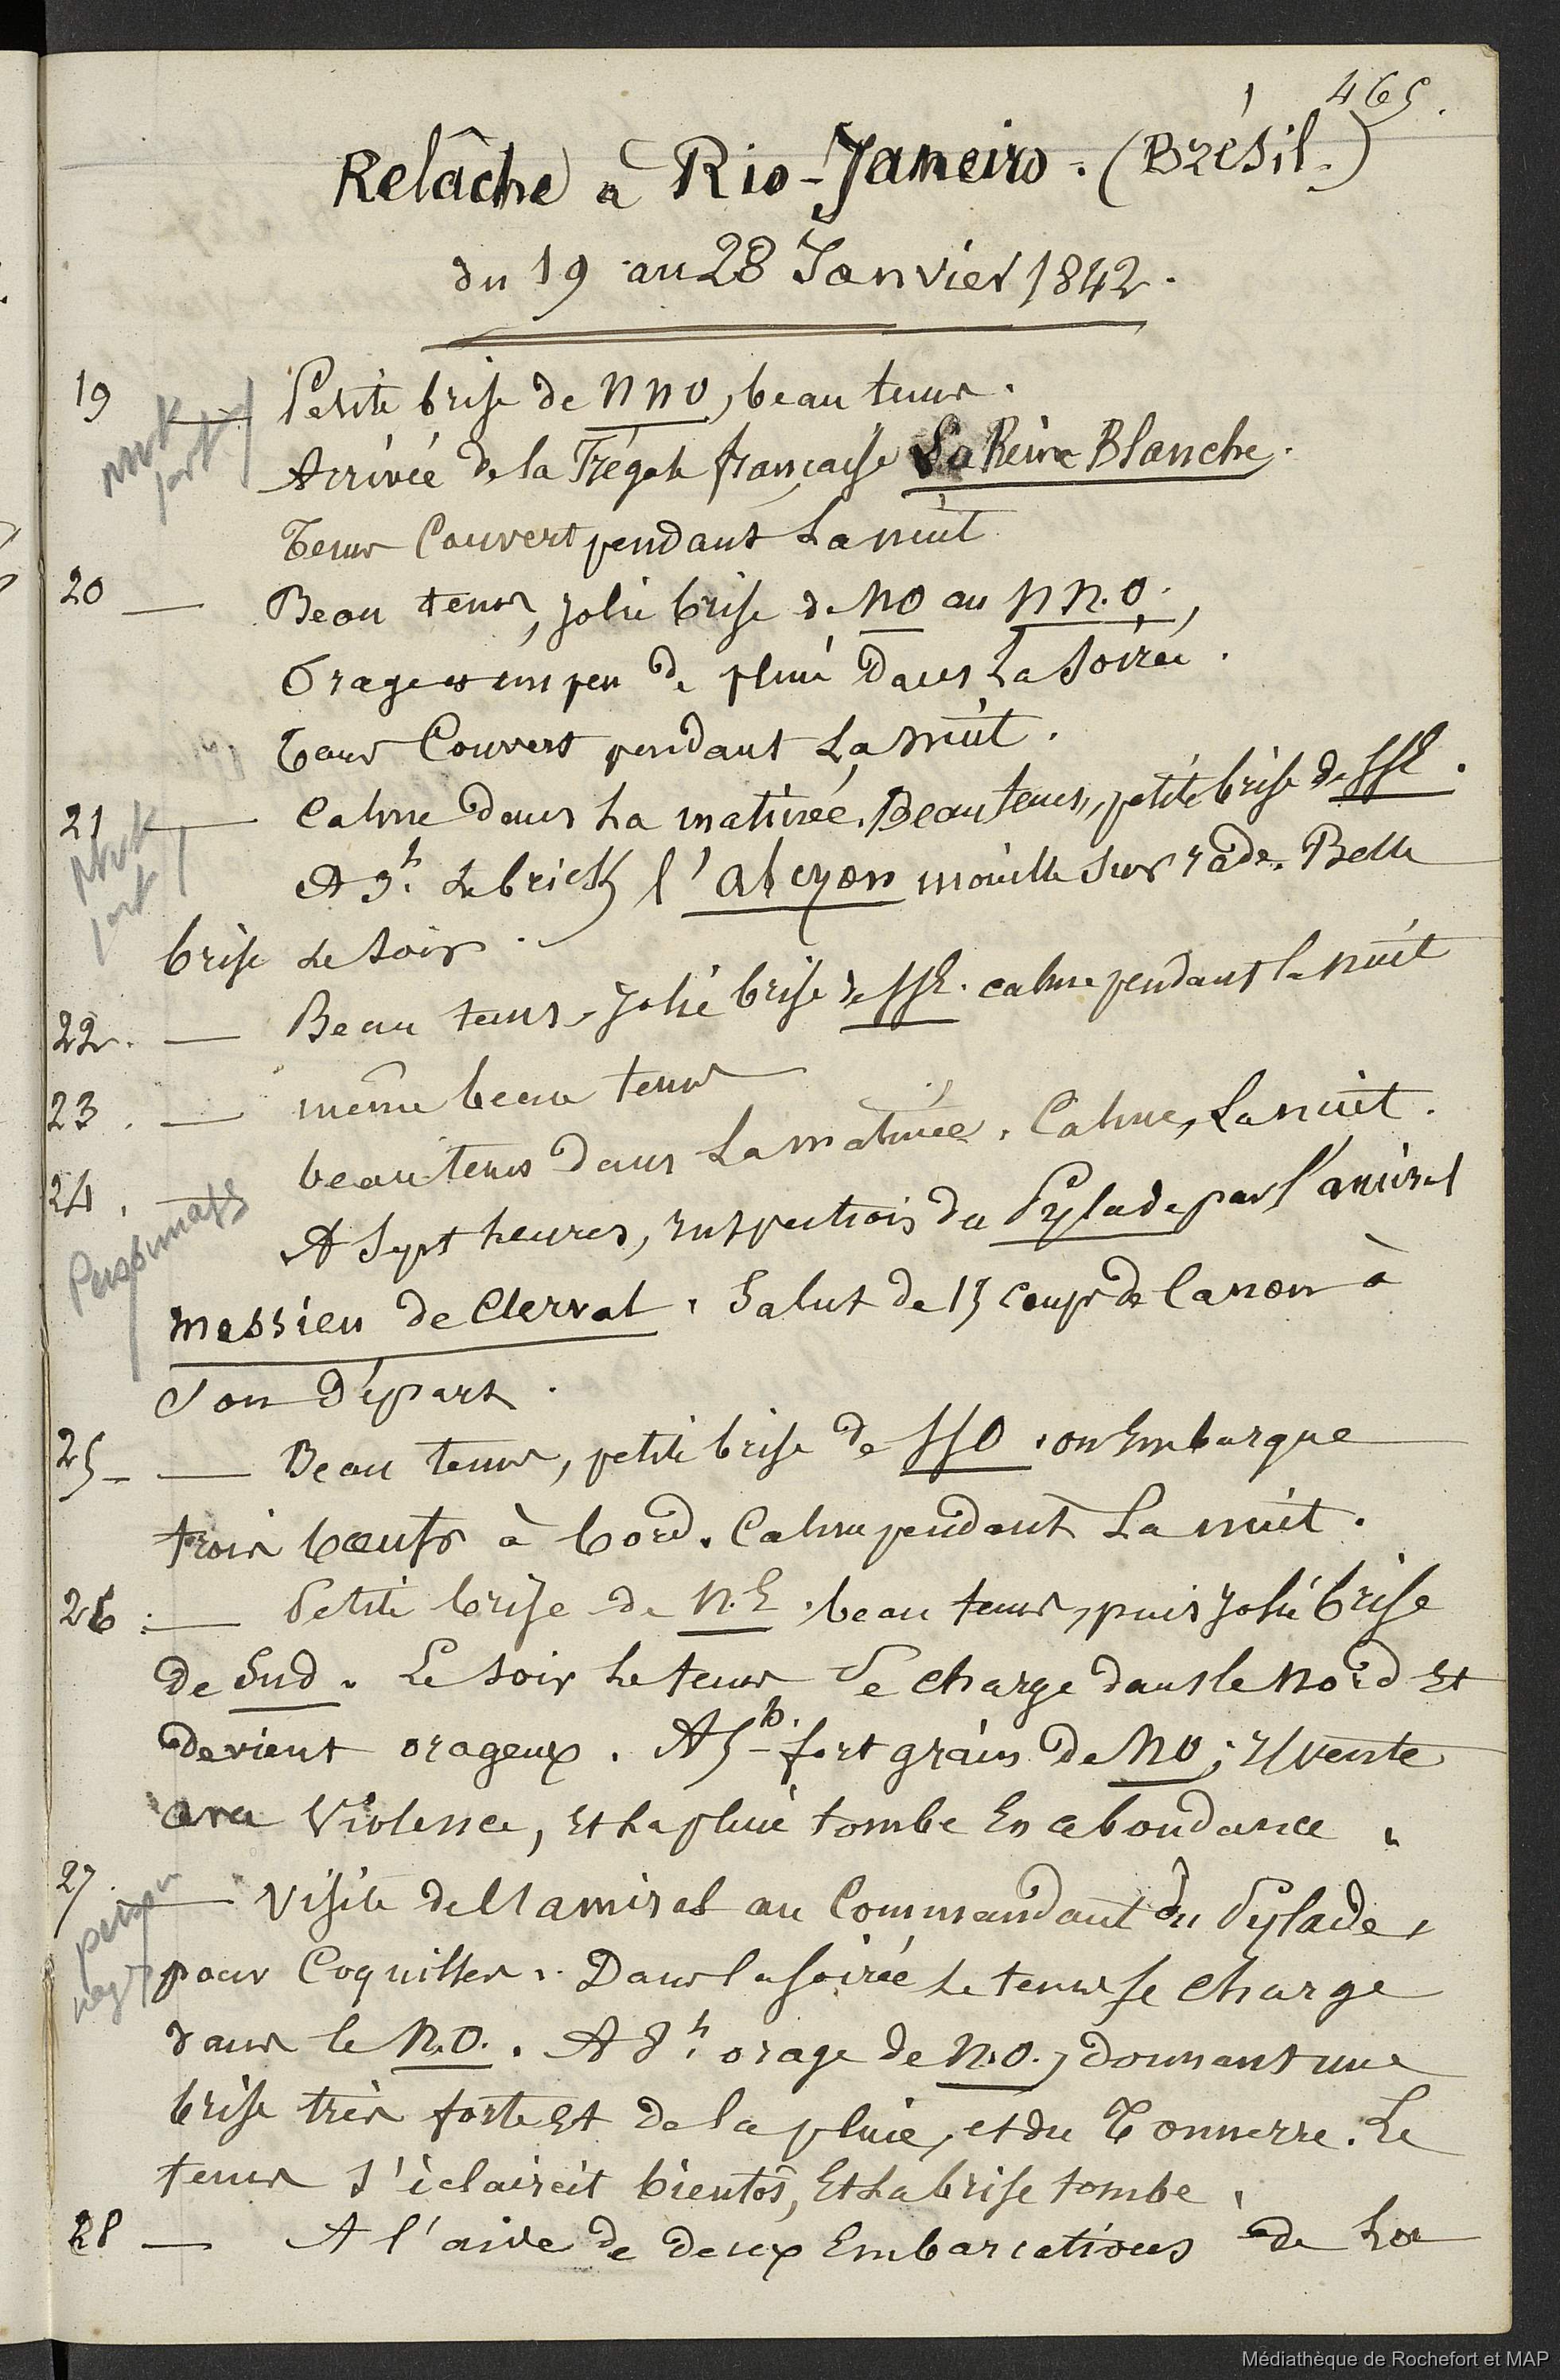 465.
Relâche à Rio-Janeiro. (Brésil.)
du 19 au 28 Janvier 1842.
19 — Petite brise de NNO, beau tems.
Arrivée de la Frégate française La Reine Blanche.
Tems Couvert pendant La nuit
20 — Beau tems, jolie brise de NO au NN.O.,
Orage et un peu de pluie dans La Soirée.
Tems Couvert pendant La nuit.
21 — Calme dans La matinée. Beau tems, petite brise de SSE.
A 9h. Le brick l'alcyon mouille sur rade. Belle
brise Le Soir.
22. — Beau tems, Jolie brise de SSE. calme pendant la nuit
23. — même beau tems
24. — beau tems dans La matinée. Calme, La nuit.
A Sept heures, inspection du Pylade par l'amiral
Massieu de Clerval. Salut de 15 coups de Canon à
Son Départ.
25 — Beau tems, petite brise de SSO. on Embarque
trois bœufs à bord. Calme pendant La nuit.
26. — Petite brise de N.E. beau tems, puis jolie brise
de Sud. Le soir Le tems Se charge dans le Nord Et
devient orageux. A 5h. fort grain de NO; il vente
avec Violence, Et La pluie tombe En abondance.
27. — Visite de l'amiral au Commandant du Pylade,
pour Coquilles. Dans la Soirée Le tems Se charge
dans le N.O.. A 8h. orage de N.O., donnant une
brise très forte Et de la pluie, et du Tonnerre. Le
tems S'éclaircit bientôt, Et La brise tombe.
28 — A l'aide de deux Embarcations de La
Médiathèque de Rochefort et MAP